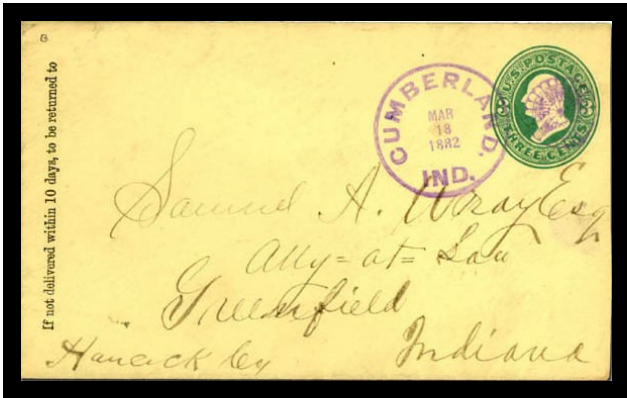 If not delivured within 10 days, to be returned to
CUMBERLAND.
MAR
18
1882
IND.
U.S. POSTAGE
THREE CENTS
Samuel A. Wray Esq
Atty=at=Law
Greenfield
Hancock Co Indiana